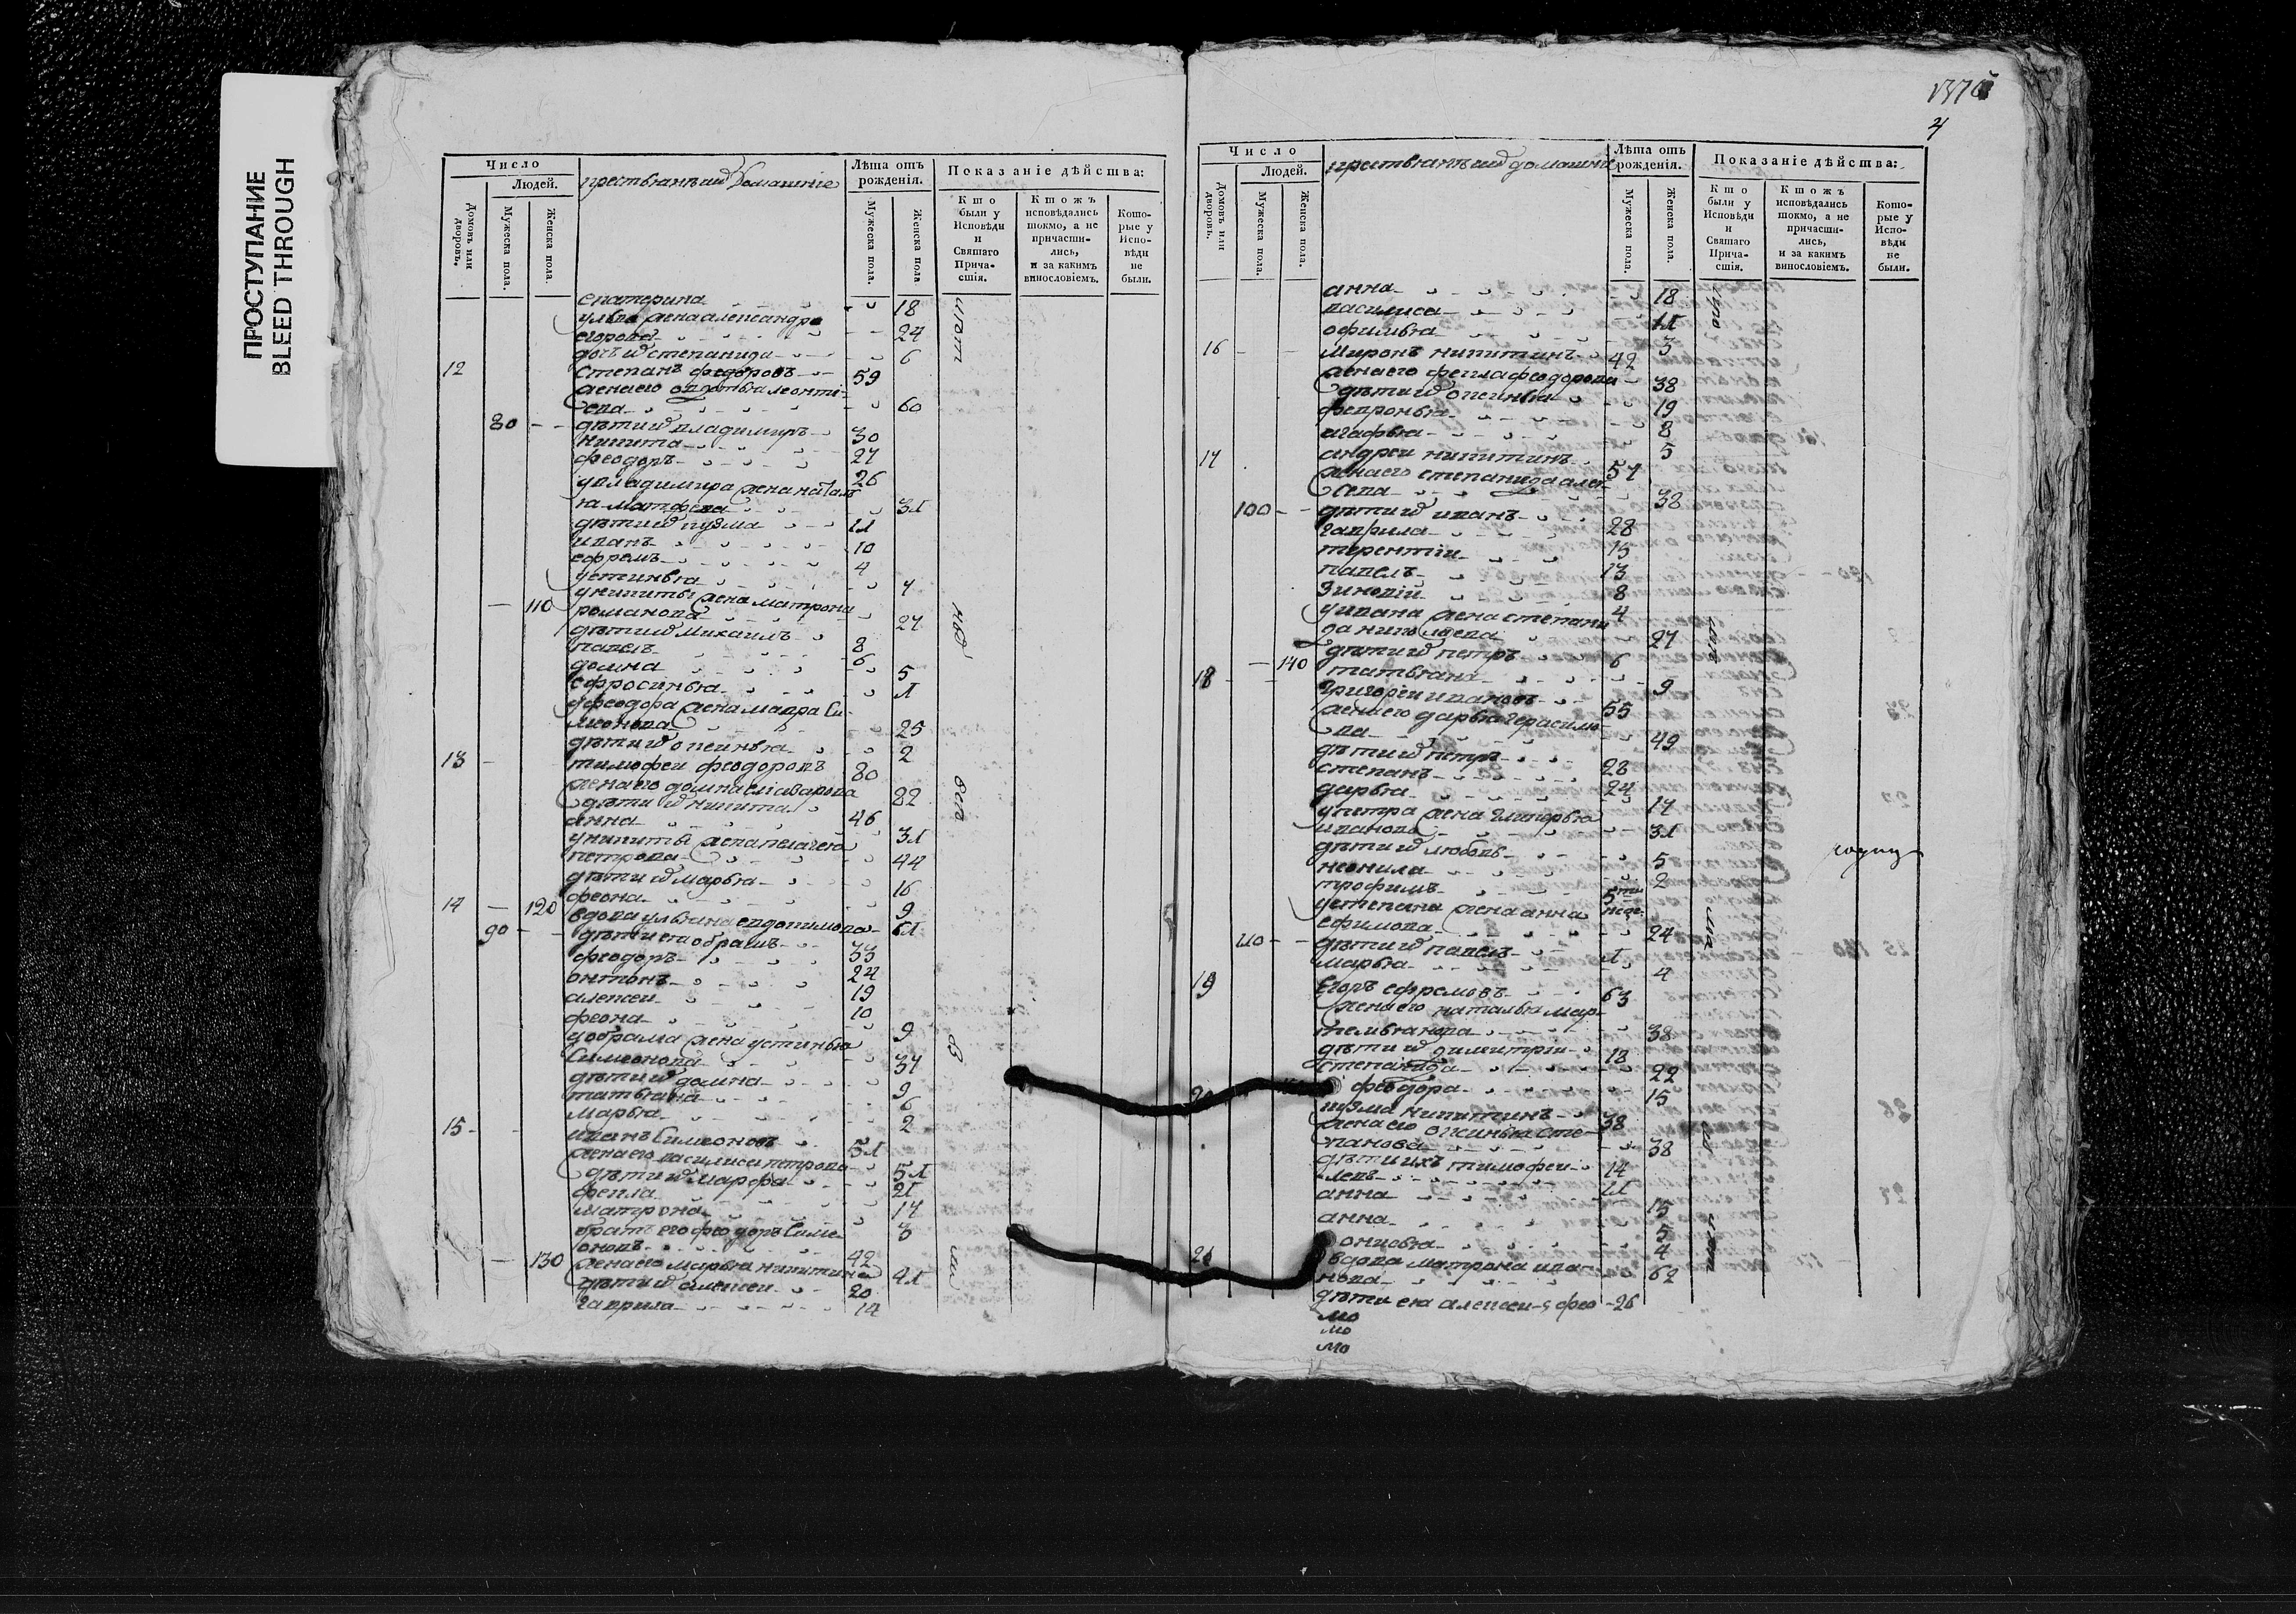 ПРОСТУПАНИЕ
BLEED THROUGH
4
Число
Людей.
Домовъ или дворовъ.
Мужеска пола.
Женска пола.
крестьянъ и домашніе
Лѣта отъ рожденія.
Мужеска пола.
Женска пола
Показаніе дѣйства:
Кто были у Исповѣди и Святаго Прича-стія.
Ктожъ исповѣдались токмо, а не причасти-лись, и за какимъ винословіемъ.
Кото-рые у Испо-вѣди не были.
екатерина 18
егорова 24
дочь ихъ степанида 6
12 степанъ федоровъ 59
ева 60
80 дѣти их владимиръ 30
никита 27
феодоръ 26
у владимира жена наталь
я матфева 31
дѣти их кузма 11
иванъ 10
ефремъ 4
устинья 7
у никиты жена матрона
110 романова 27
дѣти их михаилъ 8
павелъ 6
домна 5
ефросинья 1
у феодора жена мавра си
меонова 25
дѣти их ксинья 2
13 тимофеи феодоровъ 80
жена его домна елиазарова 82
дѣти их никита 46
анна 31
у никиты жена пелагея
петрова 44
дѣти их марья 16
120 феона 9
14 вдова ульяна евдокимова 61
90 дѣти ея абрамъ 33
феодоръ 24
онтонъ 19
алексеи 10
феона 9
у абрама жена устинья
симеонова 37
дѣти их домна 9
татьяна 6
марья 2
15 иванъ симеоновъ 51
жена его василиса петрова 51
дѣти их марфа 21
фекла 17
матрона 3
братъ его феодоръ симе
оновъ 42
130 жена его марья никитина 41
дѣти их алексеи 20
гаврила 14
Число
Людей.
Домовъ или дворовъ.
Мужеска пола.
Женска пола.
крестьянъ и домашніе
Лѣта отъ рожденія.
Мужеска пола.
Женска пола.
Показаніе дѣйства:
Кто были у Исповѣди и Святаго Прича-стія.
Ктожъ исповѣдались токмо, а не причасти-лись, и за какимъ винословіемъ.
Кото-рые у Испо-вѣди не были.
анна 18
василиса 11
офимья 3
16 миронъ никитинъ 42
жена его фекла феодорова 38
дѣти их ксинья 19
февронья 8
агафья 5
17 андреи никитинъ 57
жена его степанида алек
сева 38
100 дѣти их иванъ 28
гаврила 15
терентіи 13
павелъ 8
зиновіи 4
у ивана жена степани
да николаева 27
дѣти их петръ 6
140 татьяна 9
18 григореи ивановъ 55
жена его дарья герасимо
ва 49
дѣти их петръ 28
степанъ 24
дарья 17
у петра жена гликерья
иванова 31
дѣти их любовь 5
неонила 2
трофимъ 5ти неде.
у степана жена анна
ефимова 24
110 дѣти их павелъ 1
марья 4
19 егоръ ефремовъ 63
жена его наталья мар
темьянова 38
дѣти их димитріи 18
степанида 22
феодора 15
20 кузма никитинъ 38
жена его ксинья сте
панова 38
дѣти ихъ тимофеи 14
левъ 11
анна 15
анна 5
онисья 4
21 вдова матрона ива
нова 62
дѣти ея алексеи 26